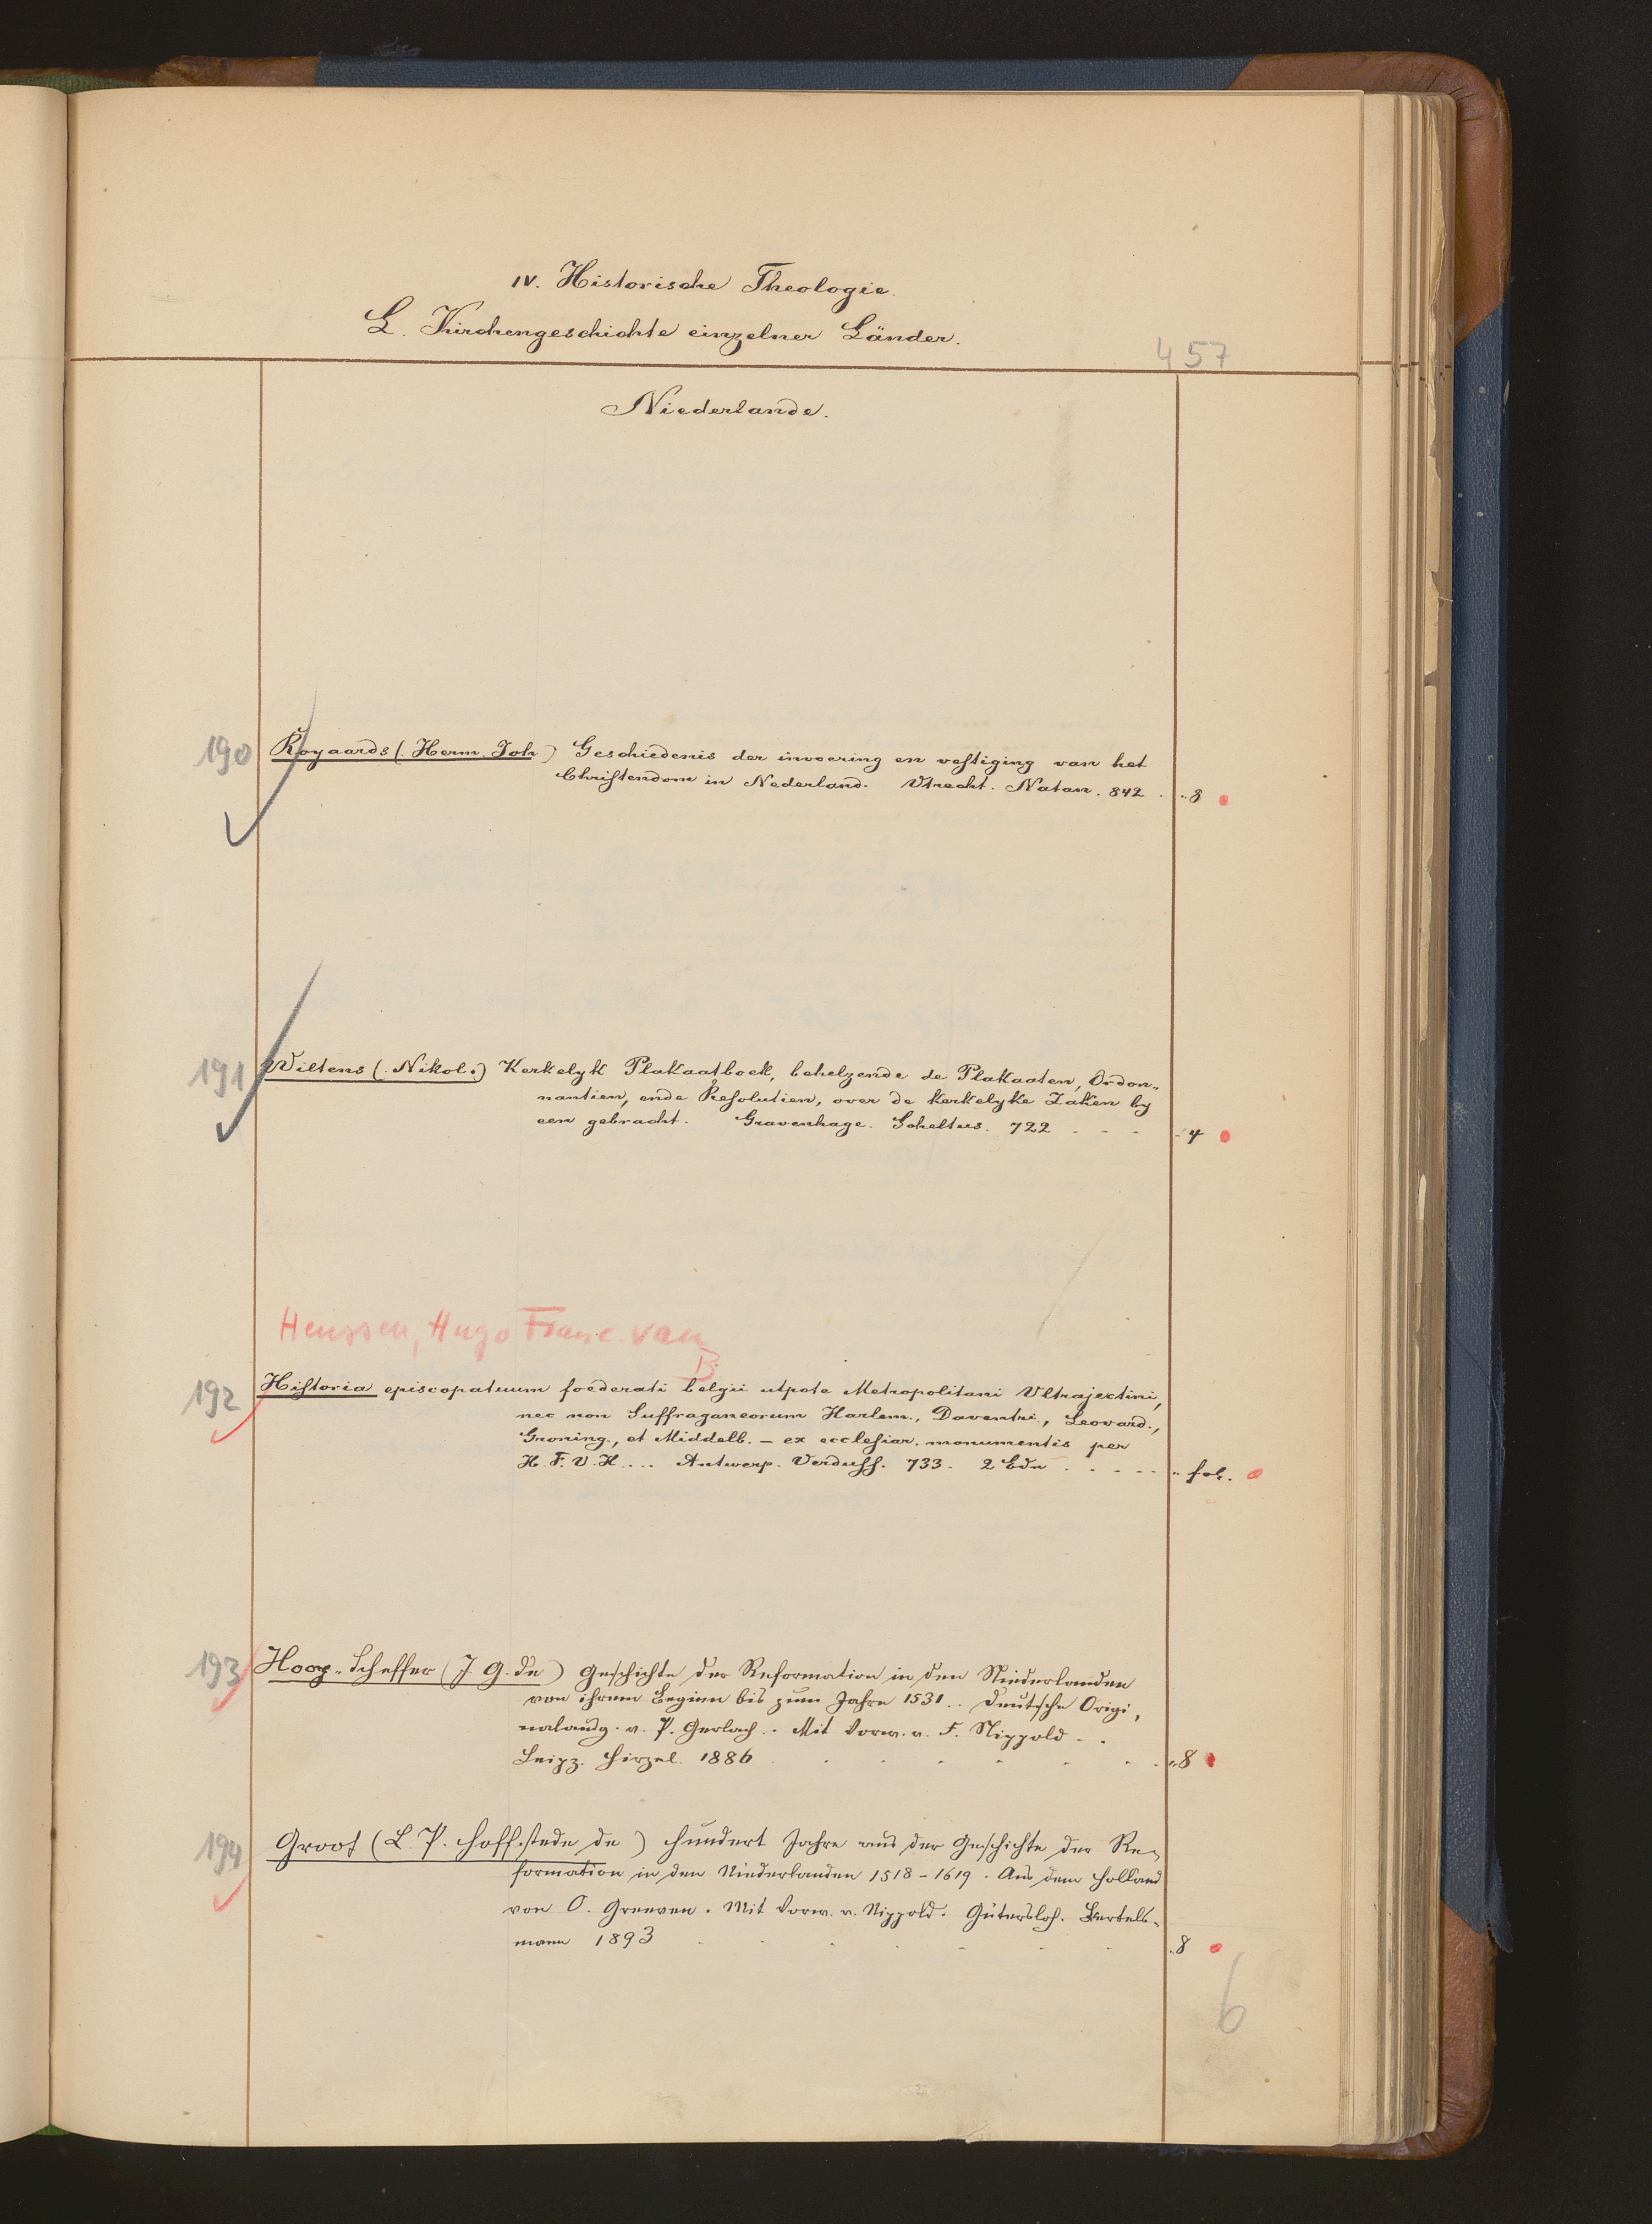 IV. Historische Theologie.
L. Kirchengeschichte einzelner Länder.
457
Niederlande.
190 Royaards (Herm. Joh.) Geschiedenis der invoering en vestiging van het
Christendom in Nederland. Utrecht. Natan. 842 . „ 8
191 Wiltens (Nikol.) Kerkelyk Plakaatboek, behelzende de Plakaaten, Ordon-
nantien, ende Resolutien, over de Kerkelyke Zaken by
een gebracht. Gravenhage. Scheltus. 722 - - - - 4
Heussen, Hugo Franc. van
B.
192 Historia episcopatuum foederati belgii utpote Metropolitani Ultrajectini,
nec non Suffraganeorum Harlem., Daventri., Leovard.,
Groning., et Middelb. – ex ecclesiar. monumentis per
H. F. V. H.... Antwerp. Verduss. 733. 2 Bde . . . . . „ fol.
193 Hoop-Scheffer (J. G. de) Geschichte der Reformation in den Niederlanden
von ihrem Beginn bis zum Jahre 1531 .. Deutsche Origi-
nalausg. v. P. Gerlach .. Mit Vorw. v. F. Nippold ..
Leipz. Hirzel. 1886 . . . . . . . . „ 8
194 Groot (L. P. Hoffstede de) Hundert Jahre aus der Geschichte der Re-
formation in den Niederlanden 1518-1619. Aus dem Holland
von O. Greeven. Mit Vorw. v. Nippold. Gütersloh. Bertels-
mann 1893 . . . . . . . „ 8
6